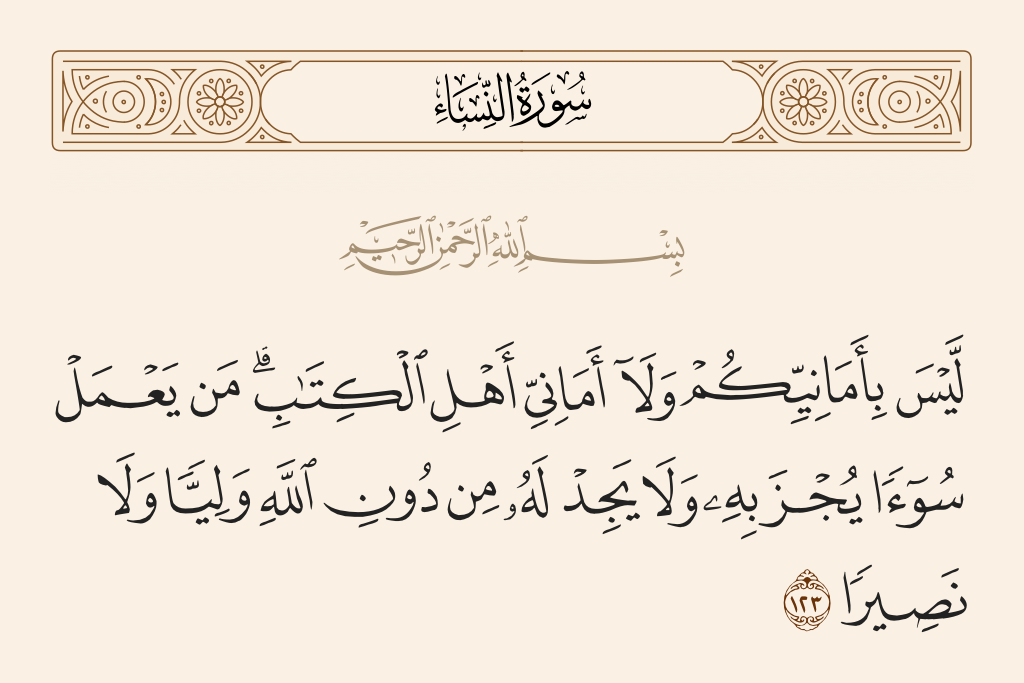 سُورَةُ النِّسَاءِ
بِسْمِ ٱللَّهِ ٱلرَّحْمَٰنِ ٱلرَّحِيمِ
لَّيْسَ بِأَمَانِيِّكُمْ وَلَآ أَمَانِىِّ أَهْلِ ٱلْكِتَٰبِ ۗ مَن يَعْمَلْ
سُوٓءًا يُجْزَ بِهِۦ وَلَا يَجِدْ لَهُۥ مِن دُونِ ٱللَّهِ وَلِيًّا وَلَا
نَصِيرًا ١٢٣